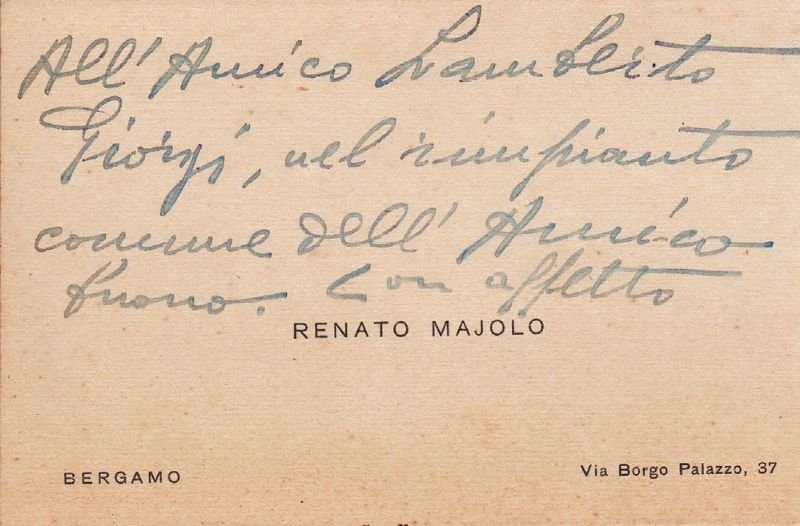 All'Amico Lamberto
Giorgi, nel rimpianto
comune dell'Amico
buono. Con affetto
RENATO MAJOLO
BERGAMO
Via Borgo Palazzo, 37